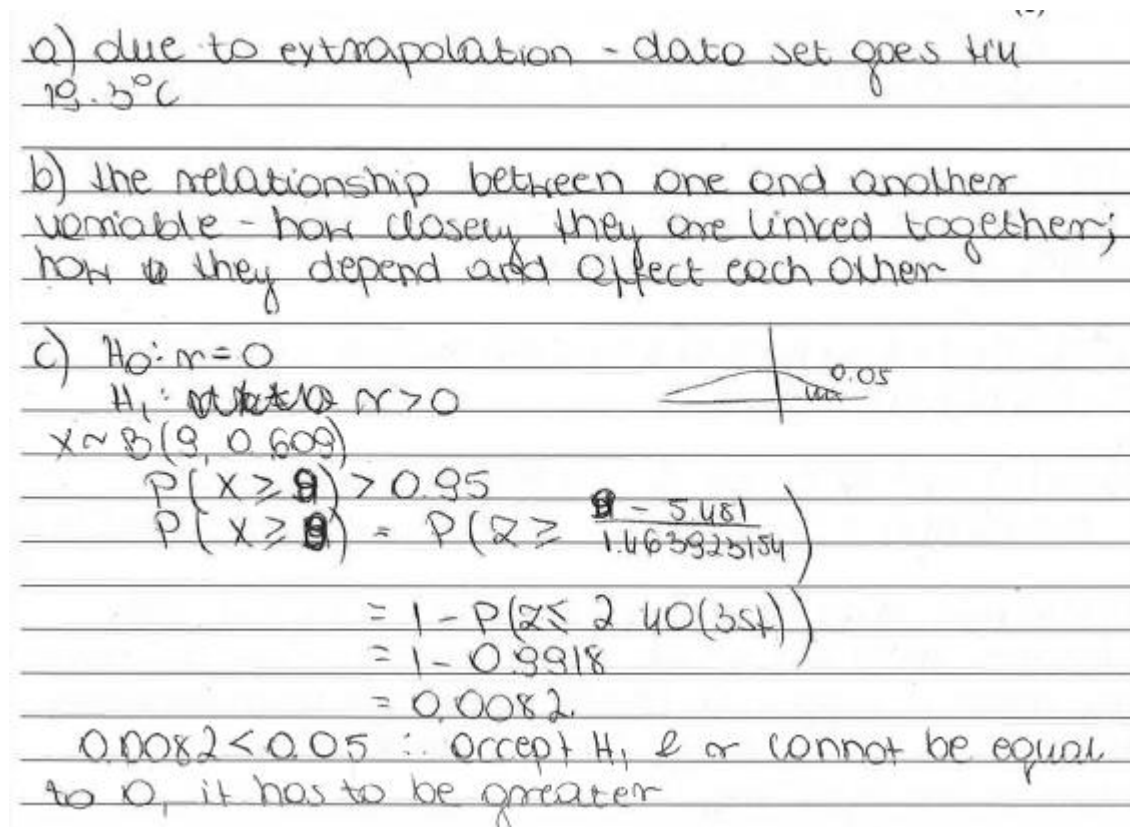 a) due to extrapolation - data set goes till
19.3°C
b) the relationship between one and another
variable - how closely they are linked together;
how they depend and affect each other
c) H₀: r = 0
H₁: r > 0
0.05
X ~ B(9, 0.609)
P(X ≥ 9) > 0.95
P(X ≥ 9) = P(Z ≥ 9 - 5.481 / 1.463923154)
= 1 - P(Z ≤ 2.40(3sf))
= 1 - 0.9918
= 0.0082.
0.0082 < 0.05 ∴ accept H₁ & r cannot be equal
to 0, it has to be greater